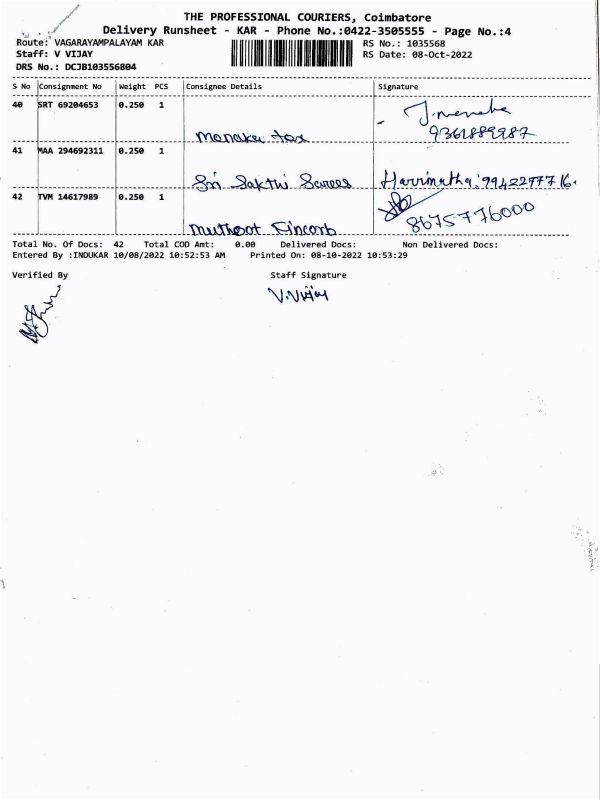 THE PROFESSIONAL COURIERS, Coimbatore
Delivery Runsheet - KAR - Phone No.:0422-3505555 - Page No.:4
Route: VAGARAYAMPALAYAM KAR
RS No.: 1035568
Staff: V VIJAY
RS Date: 08-Oct-2022
DRS No.: DCJB103556804
S No Consignment No Weight PCS Consignee Details Signature
40 SRT 69204653 0.250 1
Menaka tex 9361889987
41 MAA 294692311 0.250 1
Sri Sakthi Sarees Harrinatha. 9942297716.
42 TVM 14617989 0.250 1
8675776000
Muthoot Fincorb
Total No. Of Docs: 42 Total COD Amt: 0.00 Delivered Docs: Non Delivered Docs:
Entered By :INDUKAR 10/08/2022 10:52:53 AM Printed On: 08-10-2022 10:53:29
Verified By Staff Signature
V.Vijay